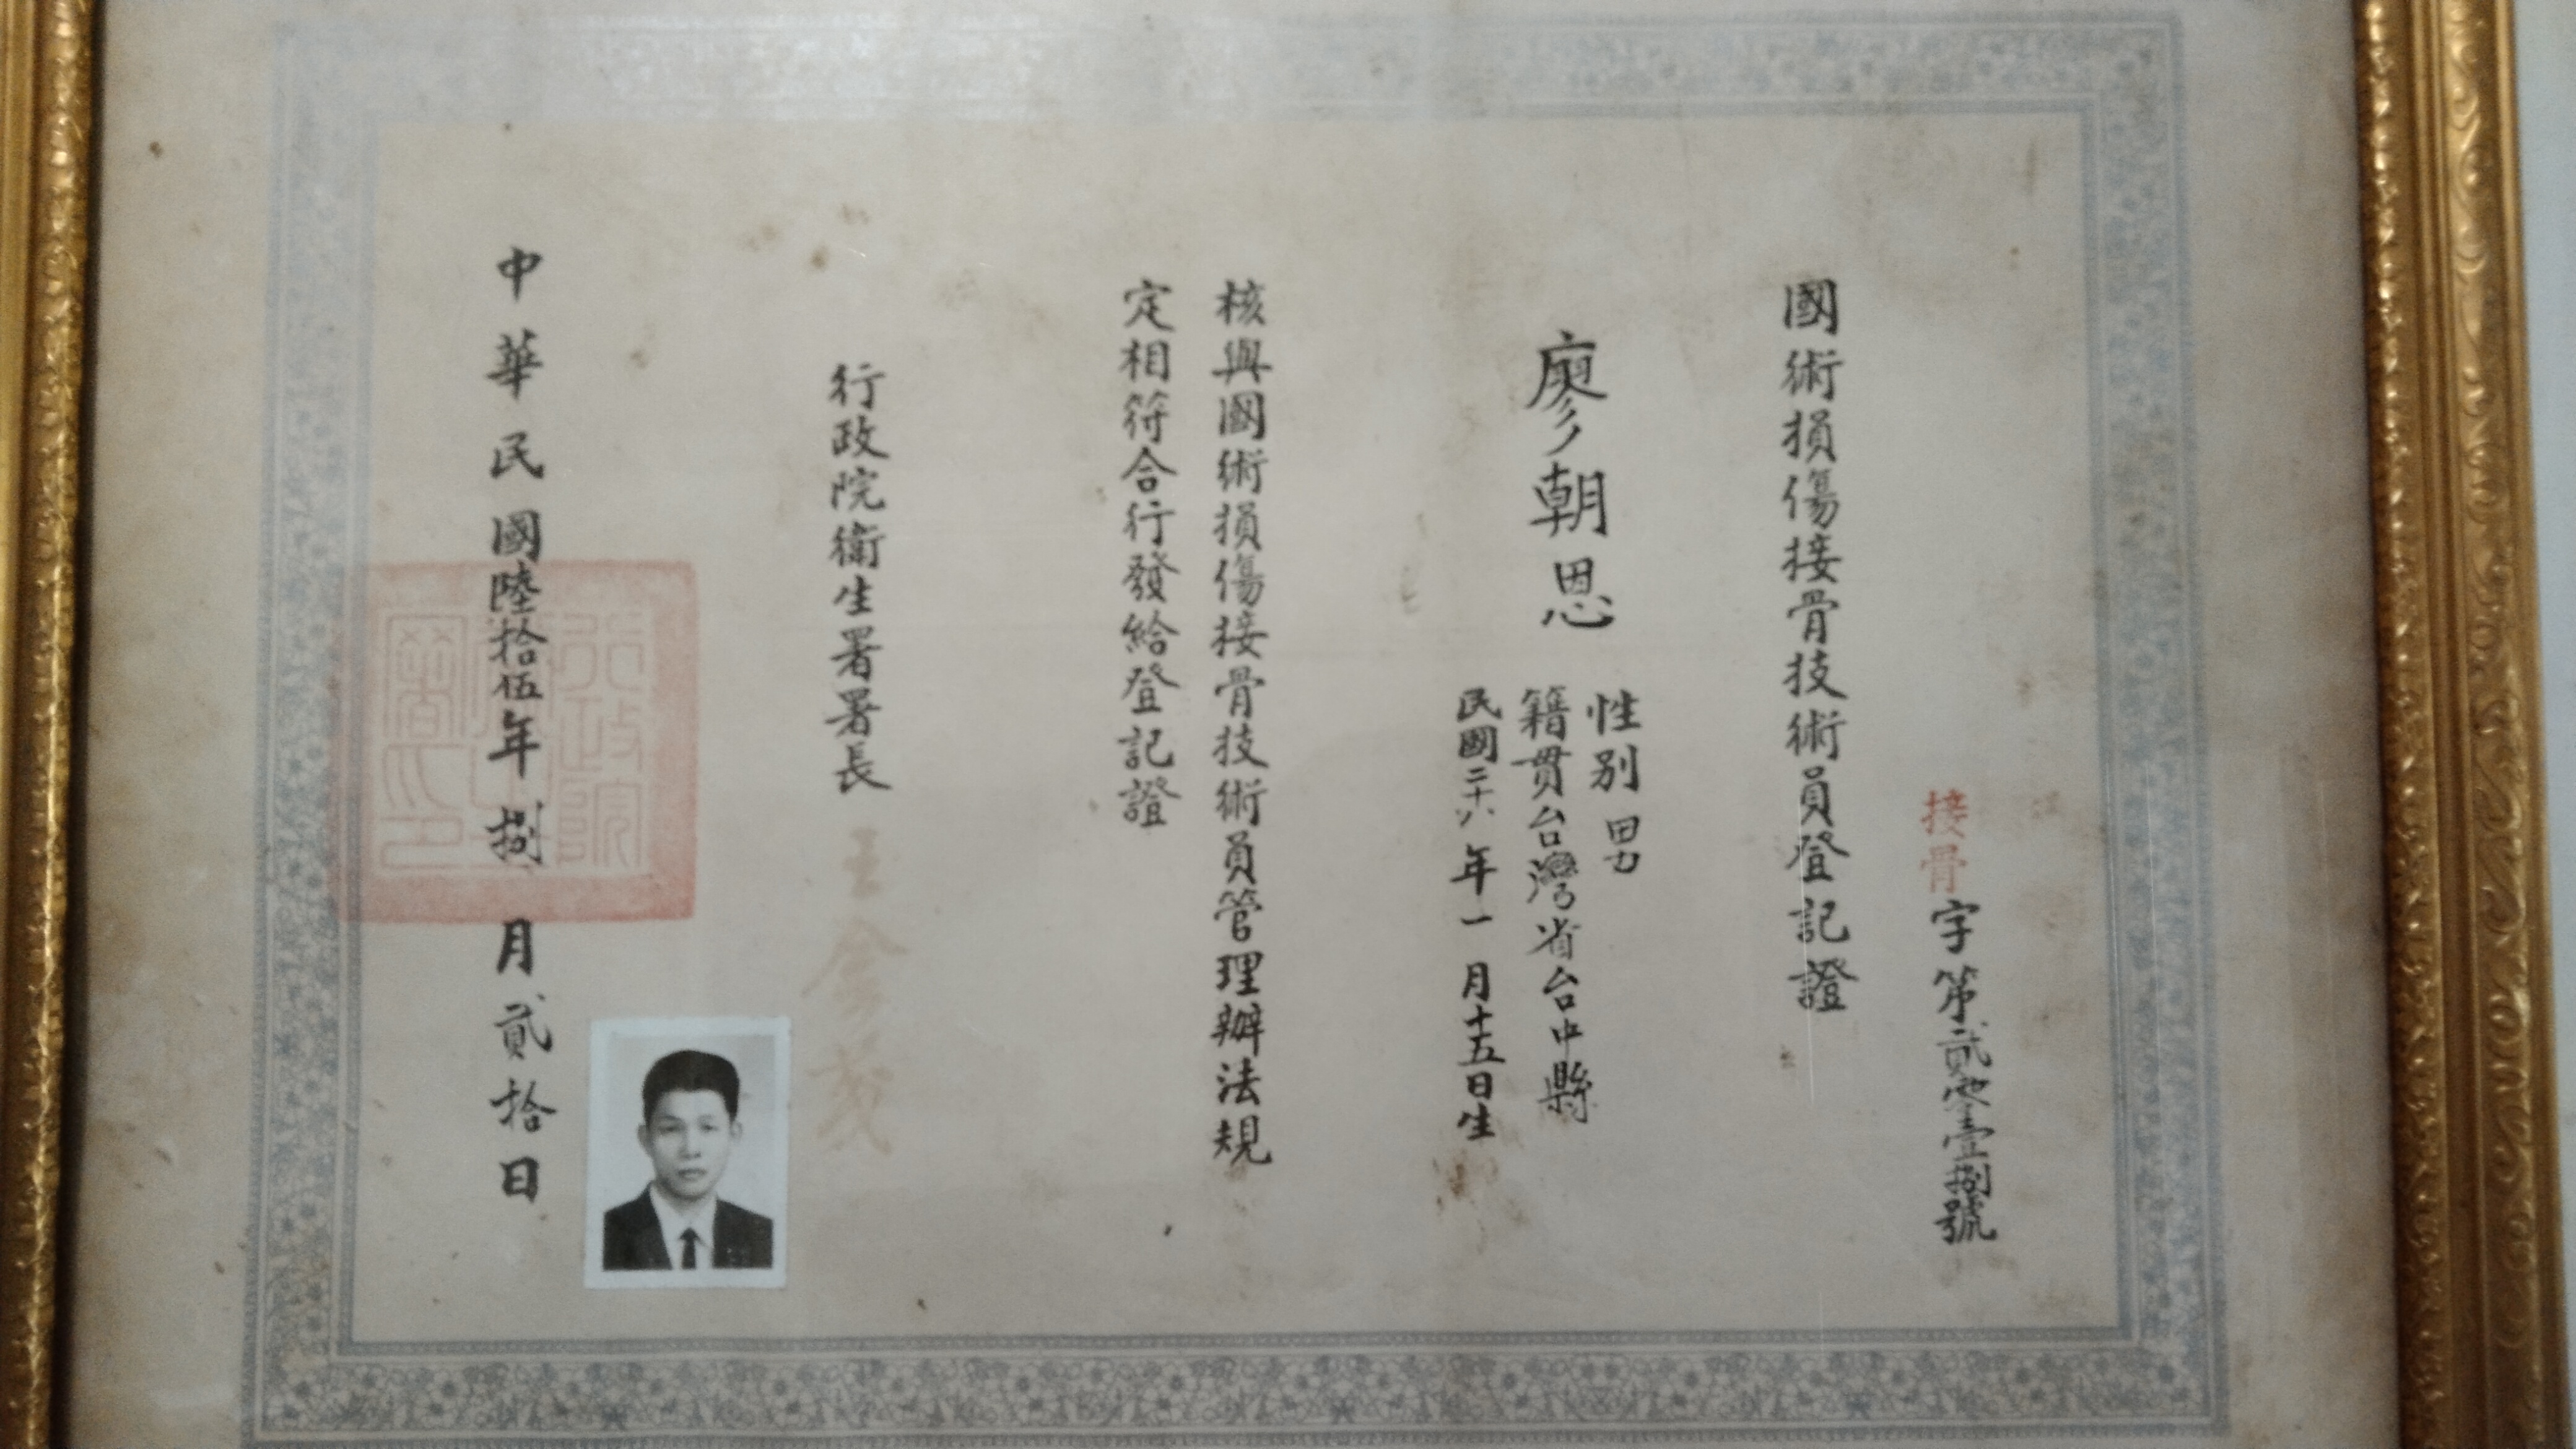 接骨字第貳零壹捌號
國術損傷接骨技術員登記證
廖朝恩
性別男
籍貫台灣省台中縣
民國二十六年一月十五日生
核與國術損傷接骨技術員管理辦法規
定相符合行發給登記證
行政院衛生署署長
王金茂
中華民國陸拾伍年捌月貳拾日